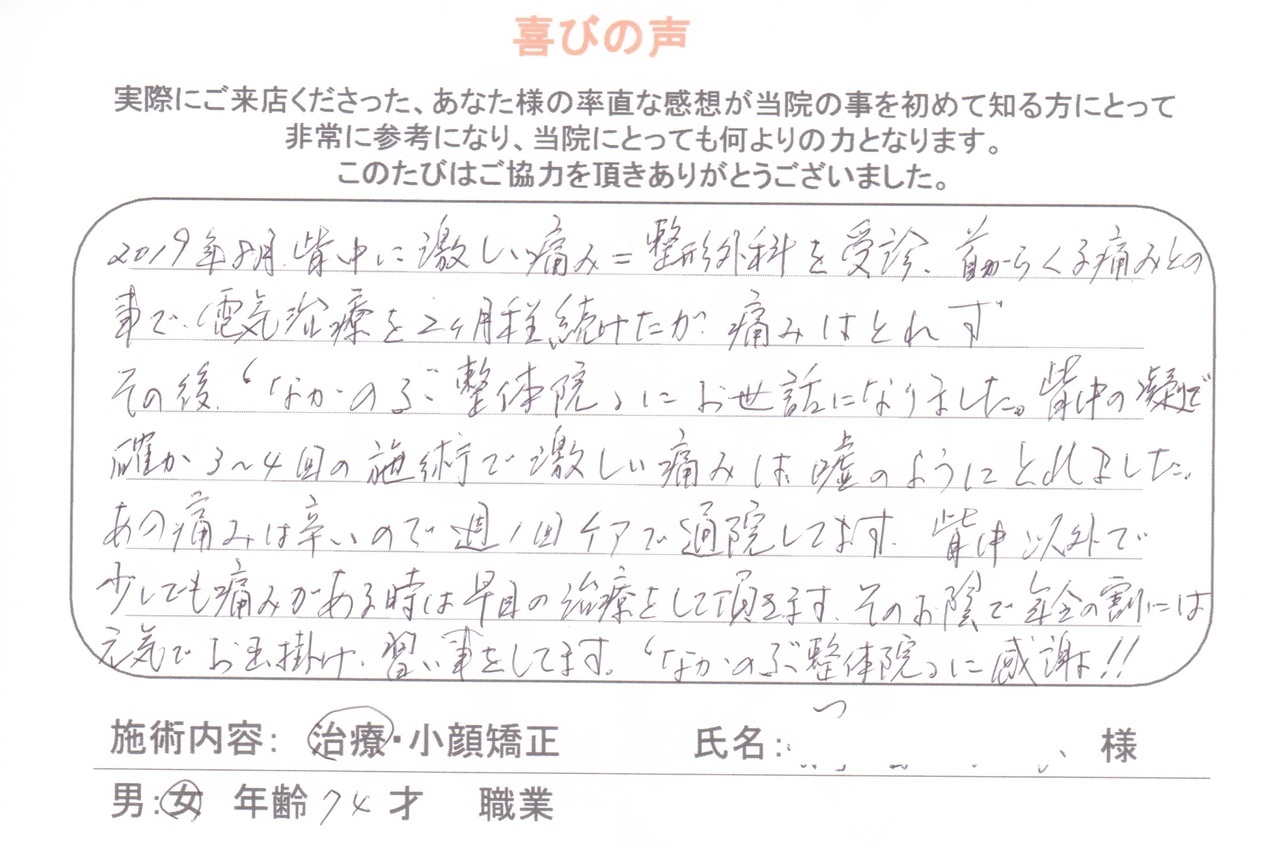 喜びの声
実際にご来店くださった、あなた様の率直な感想が当院の事を初めて知る方にとって
非常に参考になり、当院にとっても何よりの力となります。
このたびはご協力を頂きありがとうございました。
2019年8月.背中に激しい痛み=整形外科を受診、首からくる痛みとの
事で、電気治療を2ヶ月程続けたが痛みはとれず
その後、「なかのぶ整体院」にお世話になりました。背中の凝りで
確か3〜4回の施術で激しい痛みは嘘のようにとれました。
あの痛みは辛いので週1回ケアで通院してます。背中以外で
少しでも痛みがある時は早目の治療をして頂きます。そのお陰で年令の割には
元気でお出掛け、習い事をしてます。「なかのぶ整体院」に感謝!!
施術内容: 治療・小顔矯正 氏名: 様
男:女 年齢74才 職業